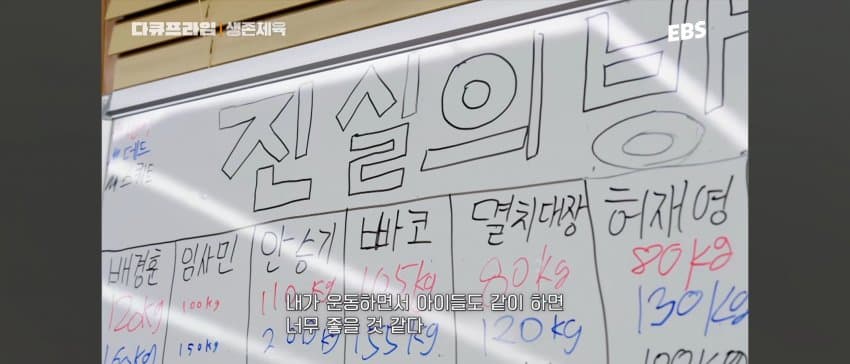 다큐프라임 생존체육
EBS
진실의 방
데드
스쿼트
배정훈 임사민 안승기 빠코 멸치대장 허재영
120kg 100kg 110kg 105kg 80kg 80kg
150kg 200kg 155kg 120kg 130kg
내가 운동하면서 아이들도 같이 하면
너무 좋을 것 같다